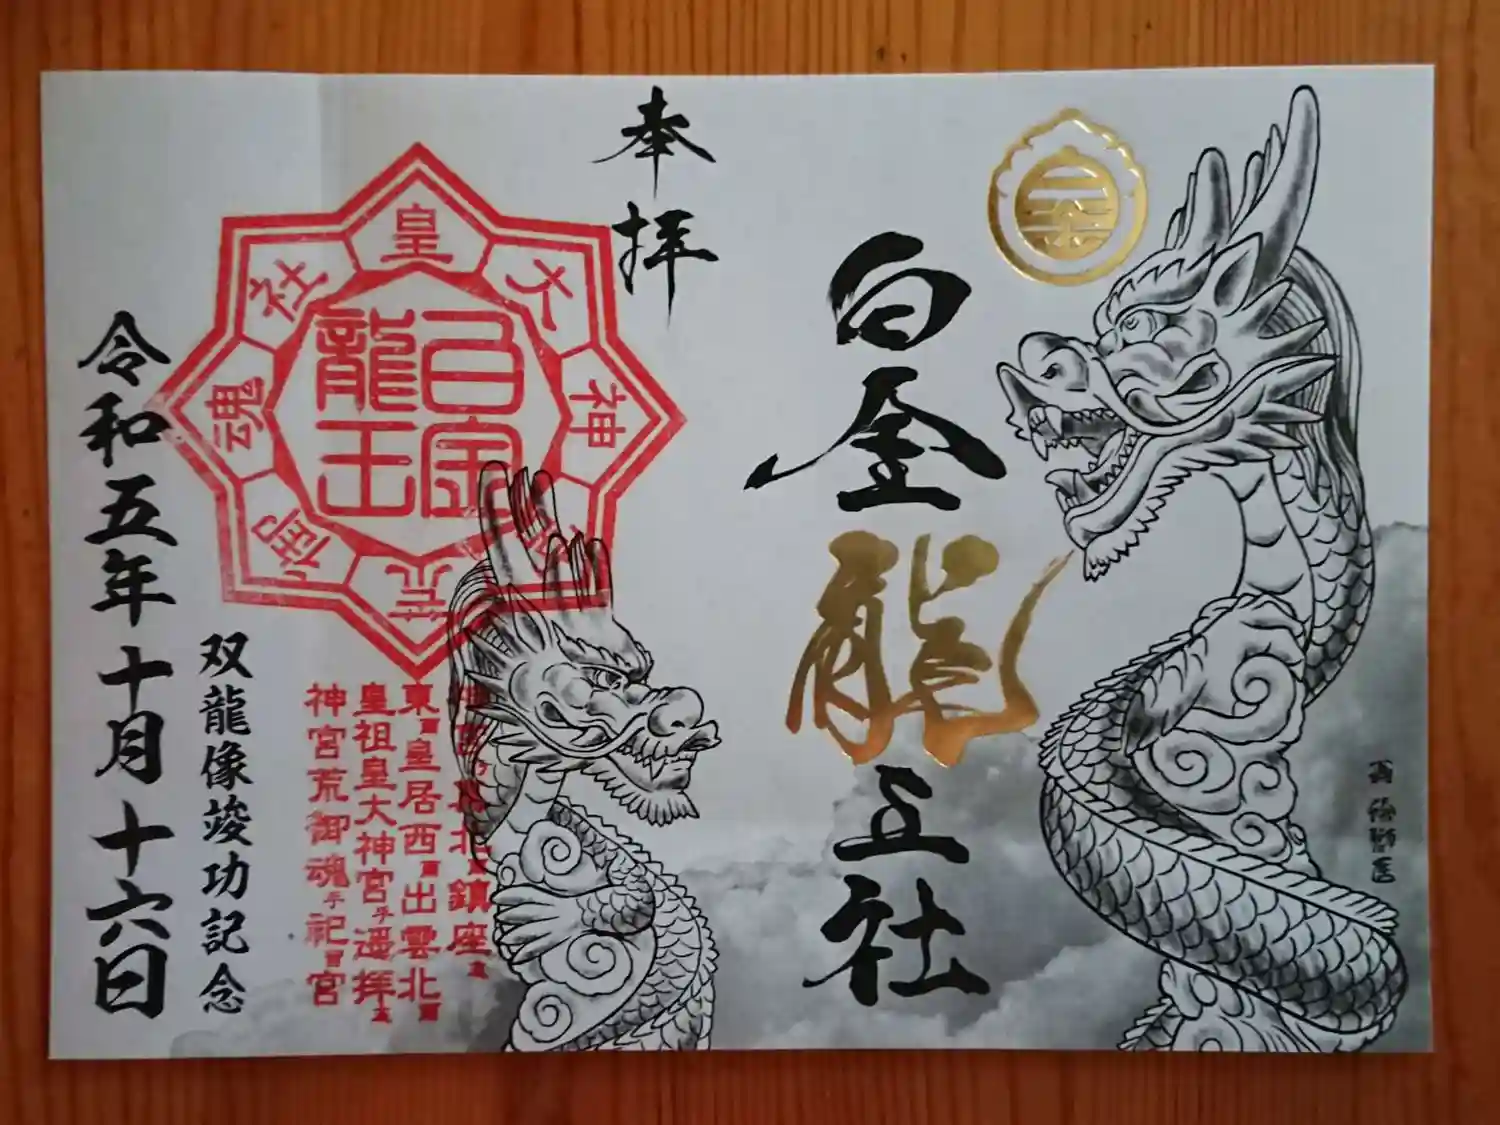 白金龍王社
奉拝
皇大神
荒御魂社
白金
龍王
北鎮座
東皇居西出雲北
皇祖皇大神宮遥拝
神宮荒御魂祀宮
双龍像竣功記念
令和五年十月十六日